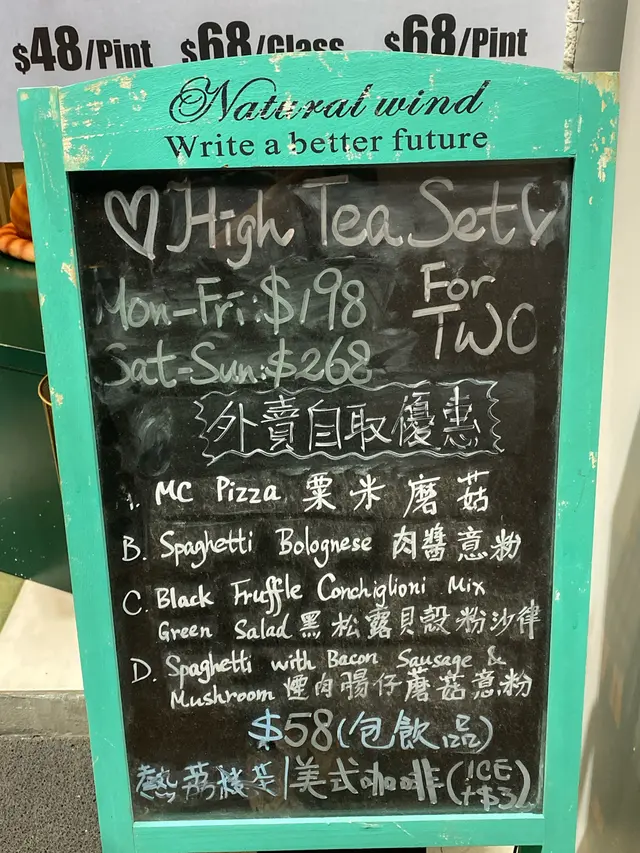 $48/Pint $68/Glass $68/Pint
Natural wind
Write a better future
High Tea Set
Mon-Fri:$198
For
TWO
Sat-Sun:$268
外賣自取優惠
MC Pizza 粟米磨菇
B. Spaghetti Bolognese 肉醬意粉
C. Black Fruffle Conchiglioni Mix
Green Salad 黑松露貝殼粉沙律
D. Spaghetti with Bacon Sausage &
Mushroom 煙肉腸仔蘑菇意粉
$58(包飲品)
熱荔枝茶|美式咖啡(ICE
+$3)